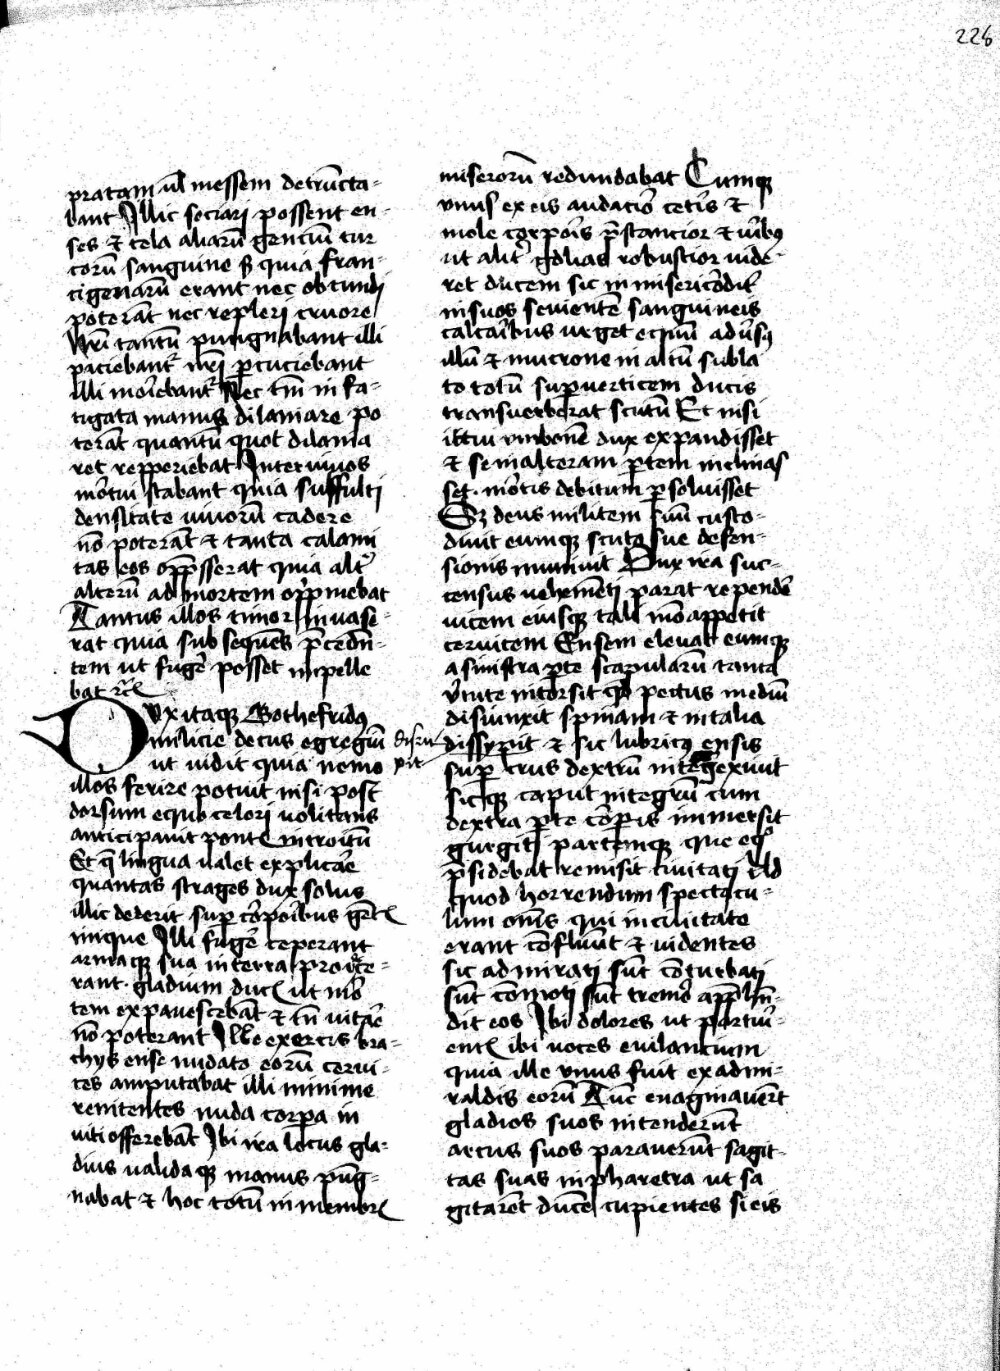 228
pratam ul̄ messem detrūcta-
bant Illic sociari possent en-
ses ⁊ tela aliarū genciū tur
corū sanguine sꝫ quia fran-
cigenarū erant nec obtundi
poterāt nec repleri cruore
Nr̄i tantū pungnabant illi
paciebant᷑ nr̄i ꝑcuciebant
illi moriebant᷑ Nec tm̄ in fa-
tigata manus dilaniare po
terāt quantū quot dilania
ret repperiebat Inter uiuos
mortui stabant quia suffulti
densitate uiuorū cadere
nō poterāt ⁊ tanta calami
tas eos opp̄sserat quia alt᷑
alterū ad mortem opp̄mebat
Tantus illos timor inuase-
rat quia subsequēs p̄cedn̄-
tem ut fuge᷑ posset inpelle
bat
Dux itaqꝫ Gothefridꝰ
milicie decus egregiū
ut uidit quia nemo
illos ferire potuit nisi post
dorsum equo celori uolitans
anticipauit pontꝭ introitū
Et q̄ lingua ualet explicare
quantas strages dux solus
illic dederit suꝑ corpoībus gētꝭ
inique Illi fuge᷑ ceperant
armaqꝫ sua in terra proice-
rant. gladium ducꝭ ut mor
tem expauescebāt ⁊ tn̄ uitare
nō poterant Ille exertis bra-
chys ense nudato eorū cerui-
ces amputabat illi minime
renitentes nuda corꝑa in
uiti offerebāt Ibi ira locus gla-
dius ualidaqꝫ manus pūg-
nabat ⁊ hoc totū in membrꝭ
disru
pit
miserorū redundabat Cumqꝫ
vnus ex eis audacior ceteris ⁊
mole corporis p̄stancior ⁊ uiribꝰ
ut alit᷑ golias robustior uide-
ret ducem sic inmisericordit᷑
in suos seuientē sanguineis
calcaribus urget equū aduersꝰ
illū ⁊ mucrone in altū subla
to totū suꝑ verticem ducis
transuerberat scutū Et nisi
ictui vmbonē dux expandisset
⁊ se in alteram ꝑtem inclinas
set. mortis debitum ꝑsoluisset
Sꝫ deus militem suū custo-
diuit eumqꝫ scuto sue defen-
sionis muniuit Dux ira suc-
census uehementi parat rependere
uicem eiusqꝫ tali mō appetit
ceruicem Ensem eleuat eumqꝫ
a sinistra ꝑte scapularū tanta
v̄tute intorsit qd̄ pectus mediū
disiunxit spinam ⁊ uitalia
dissypuit ⁊ sic lubricꝰ ensis
suꝑ crus dextrū integer exiuit
sicqꝫ caput integrū cum
dextra ꝑte corporis immersit
gurgiti partemqꝫ que eqo
p̄sidebat remisit ciuitati Ad
quod horrendum spectacu-
lum om̄s qui in ciuitate
erant cōfluūt ⁊ uidentes
sic admirati sūt cōturbati
sūt cōmoti sūt tremor app̄hn̄-
dit eos Ibi dolores ut parturi-
entꝭ ibi uoces euilancium
quia ille vnus fuit ex admi-
raldis eorū Tūc euaginauer̄t
gladios suos intenderūt
arcus suos parauerūt sagit-
tas suas in pharetra ut sa
gitarēt ducē cupientes si eis